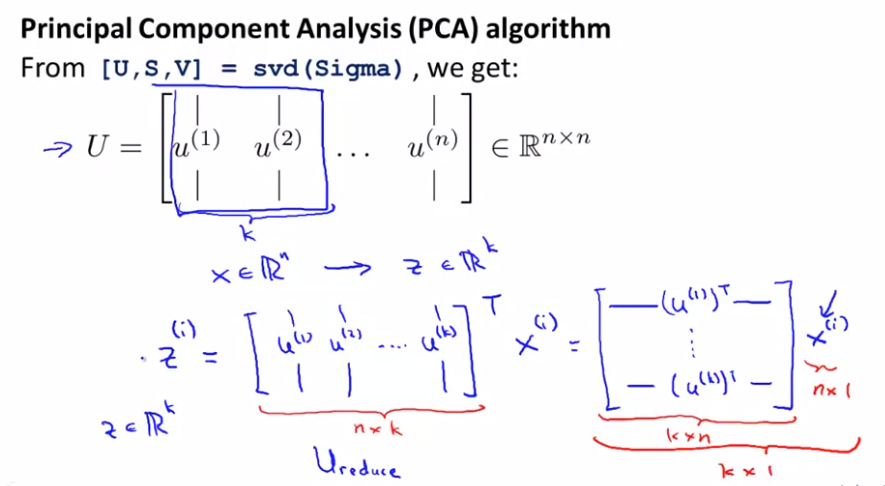 Principal Component Analysis (PCA) algorithm
From [U,S,V] = svd(Sigma), we get:
→ U = [ | | | ; u^{(1)} u^{(2)} ... u^{(n)} ; | | | ] ∈ ℝ^{n×n}
k
x ∈ ℝ^n → z ∈ ℝ^k
z^{(i)} = [ | | | ; u^{(1)} u^{(2)} .... u^{(k)} ; | | | ]^T x^{(i)} = [ — (u^{(1)})^T — ; ⋮ ; — (u^{(k)})^T — ] x^{(i)}
z ∈ ℝ^k
n×k
k×n
n×1
U_{reduce}
k×1